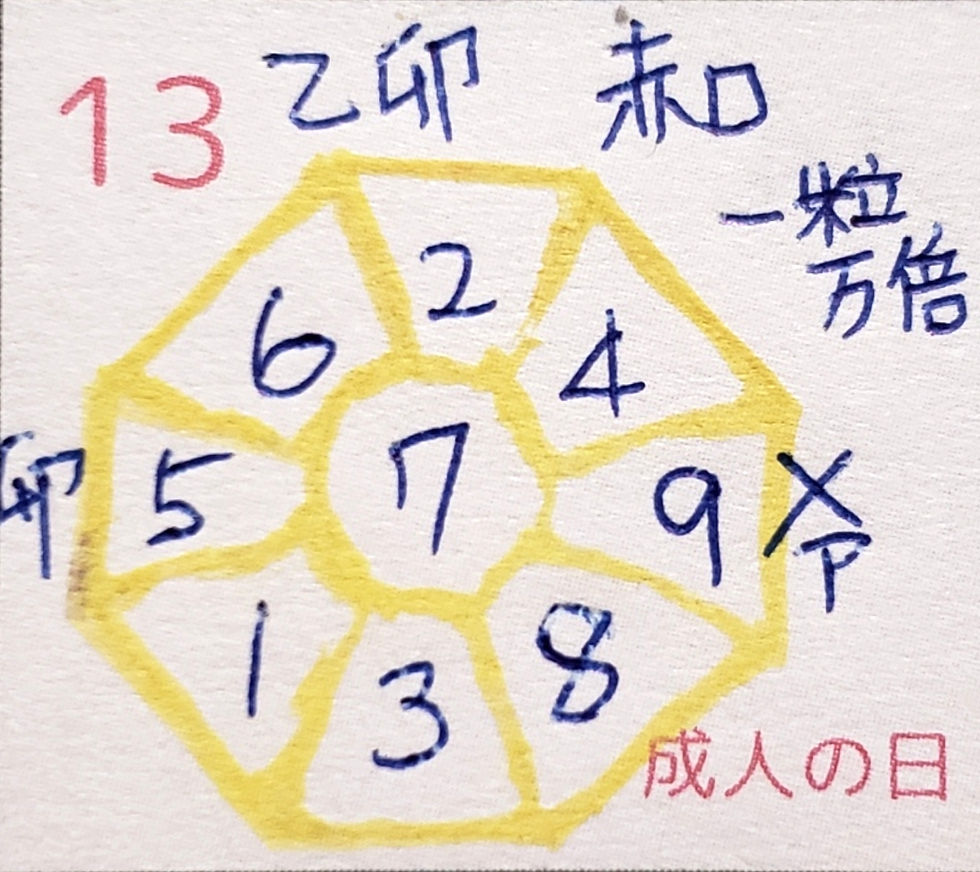 13 乙卯 赤口
一粒
万倍
6 2 4
卯 5 7 9 ×
P
1 3 8
成人の日